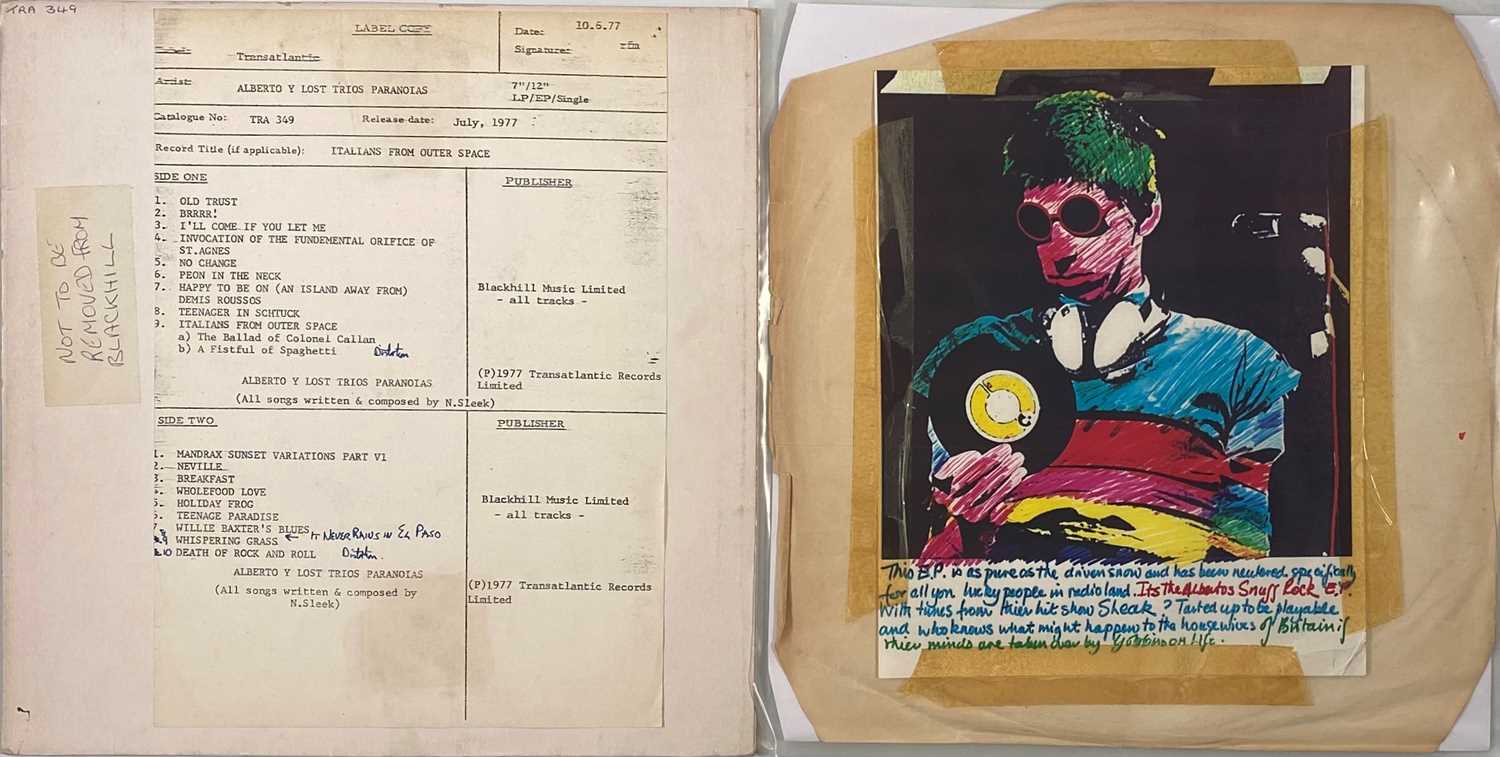 TRA 349
LABEL COPY
Date: 10.6.77
Signature: rfm
Transatlantic
Artist: ALBERTO Y LOST TRIOS PARANOIAS
7"/12"
LP/EP/Single
Catalogue No: TRA 349 Release date: July, 1977
Record Title (if applicable): ITALIANS FROM OUTER SPACE
SIDE ONE
PUBLISHER
1. OLD TRUST
2. BRRRR!
3. I'LL COME IF YOU LET ME
4. INVOCATION OF THE FUNDEMENTAL ORIFICE OF
ST.AGNES
5. NO CHANGE
6. PEON IN THE NECK
7. HAPPY TO BE ON (AN ISLAND AWAY FROM)
DEMIS ROUSSOS
8. TEENAGER IN SCHTUCK
9. ITALIANS FROM OUTER SPACE
a) The Ballad of Colonel Callan
b) A Fistful of Spaghetti
Blackhill Music Limited
- all tracks -
(P)1977 Transatlantic Records
Limited
ALBERTO Y LOST TRIOS PARANOIAS
(All songs written & composed by N.Sleek)
SIDE TWO
PUBLISHER
1. MANDRAX SUNSET VARIATIONS PART V1
2. NEVILLE
3. BREAKFAST
WHOLEFOOD LOVE
5. HOLIDAY FROG
6. TEENAGE PARADISE
7. WILLIE BAXTER'S BLUES
IT NEVER RAINS IN EL PASO
9 WHISPERING GRASS
10 DEATH OF ROCK AND ROLL
Blackhill Music Limited
- all tracks -
ALBERTO Y LOST TRIOS PARANOIAS
(All songs written & composed by
N.Sleek)
(P)1977 Transatlantic Records
Limited
NOT TO BE
REMOVED FROM
BLACKHILL
This E.P. is as pure as the driven snow and has been neutered specifically
for all you lucky people in radio land. Its the Albertos Snuff Rock E.P.
with tunes from thier hit show Sleak? Tarted up to be playable
and who knows what might happen to the housewives of Britain if
thier minds are taken over by Gobbin on Life.